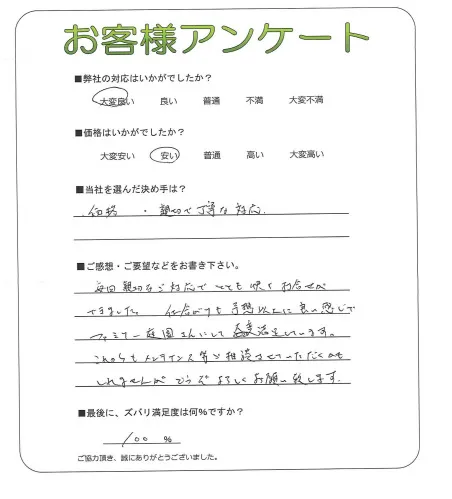 お客様アンケート
■弊社の対応はいかがでしたか？
大変良い 良い 普通 不満 大変不満
■価格はいかがでしたか？
大変安い 安い 普通 高い 大変高い
■当社を選んだ決め手は？
・価格 ・親切で丁寧な対応.
■ご感想・ご要望などをお書き下さい。
毎回親切なご対応でとても お任せが
できました。仕上がりも予想以上に良い感じで
ファミリー庭園さんにして 満足しています。
これからもメンテナンス等ご相談させていただくかも
しれませんがどうぞよろしくお願い致します.
■最後に、ズバリ満足度は何%ですか？
100 %
ご協力頂き、誠にありがとうございました。